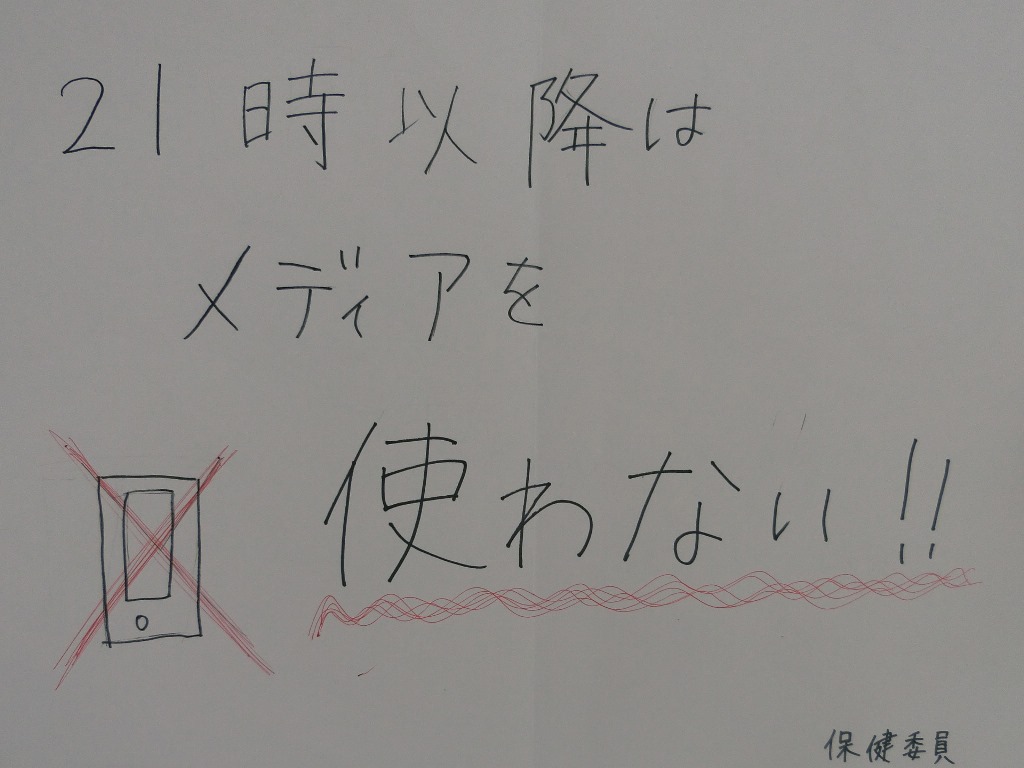 21時以降は
メディアを
使わない!!
保健委員